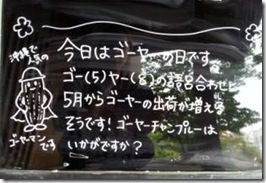 今日はゴーヤーの日です
ゴー(5)ヤー(8)の語呂合わせと
5月からゴーヤーの出荷が増える
そうです!ゴーヤーチャンプルーは
いかがですか?
沖縄で
人気の
ゴーヤーマン
です